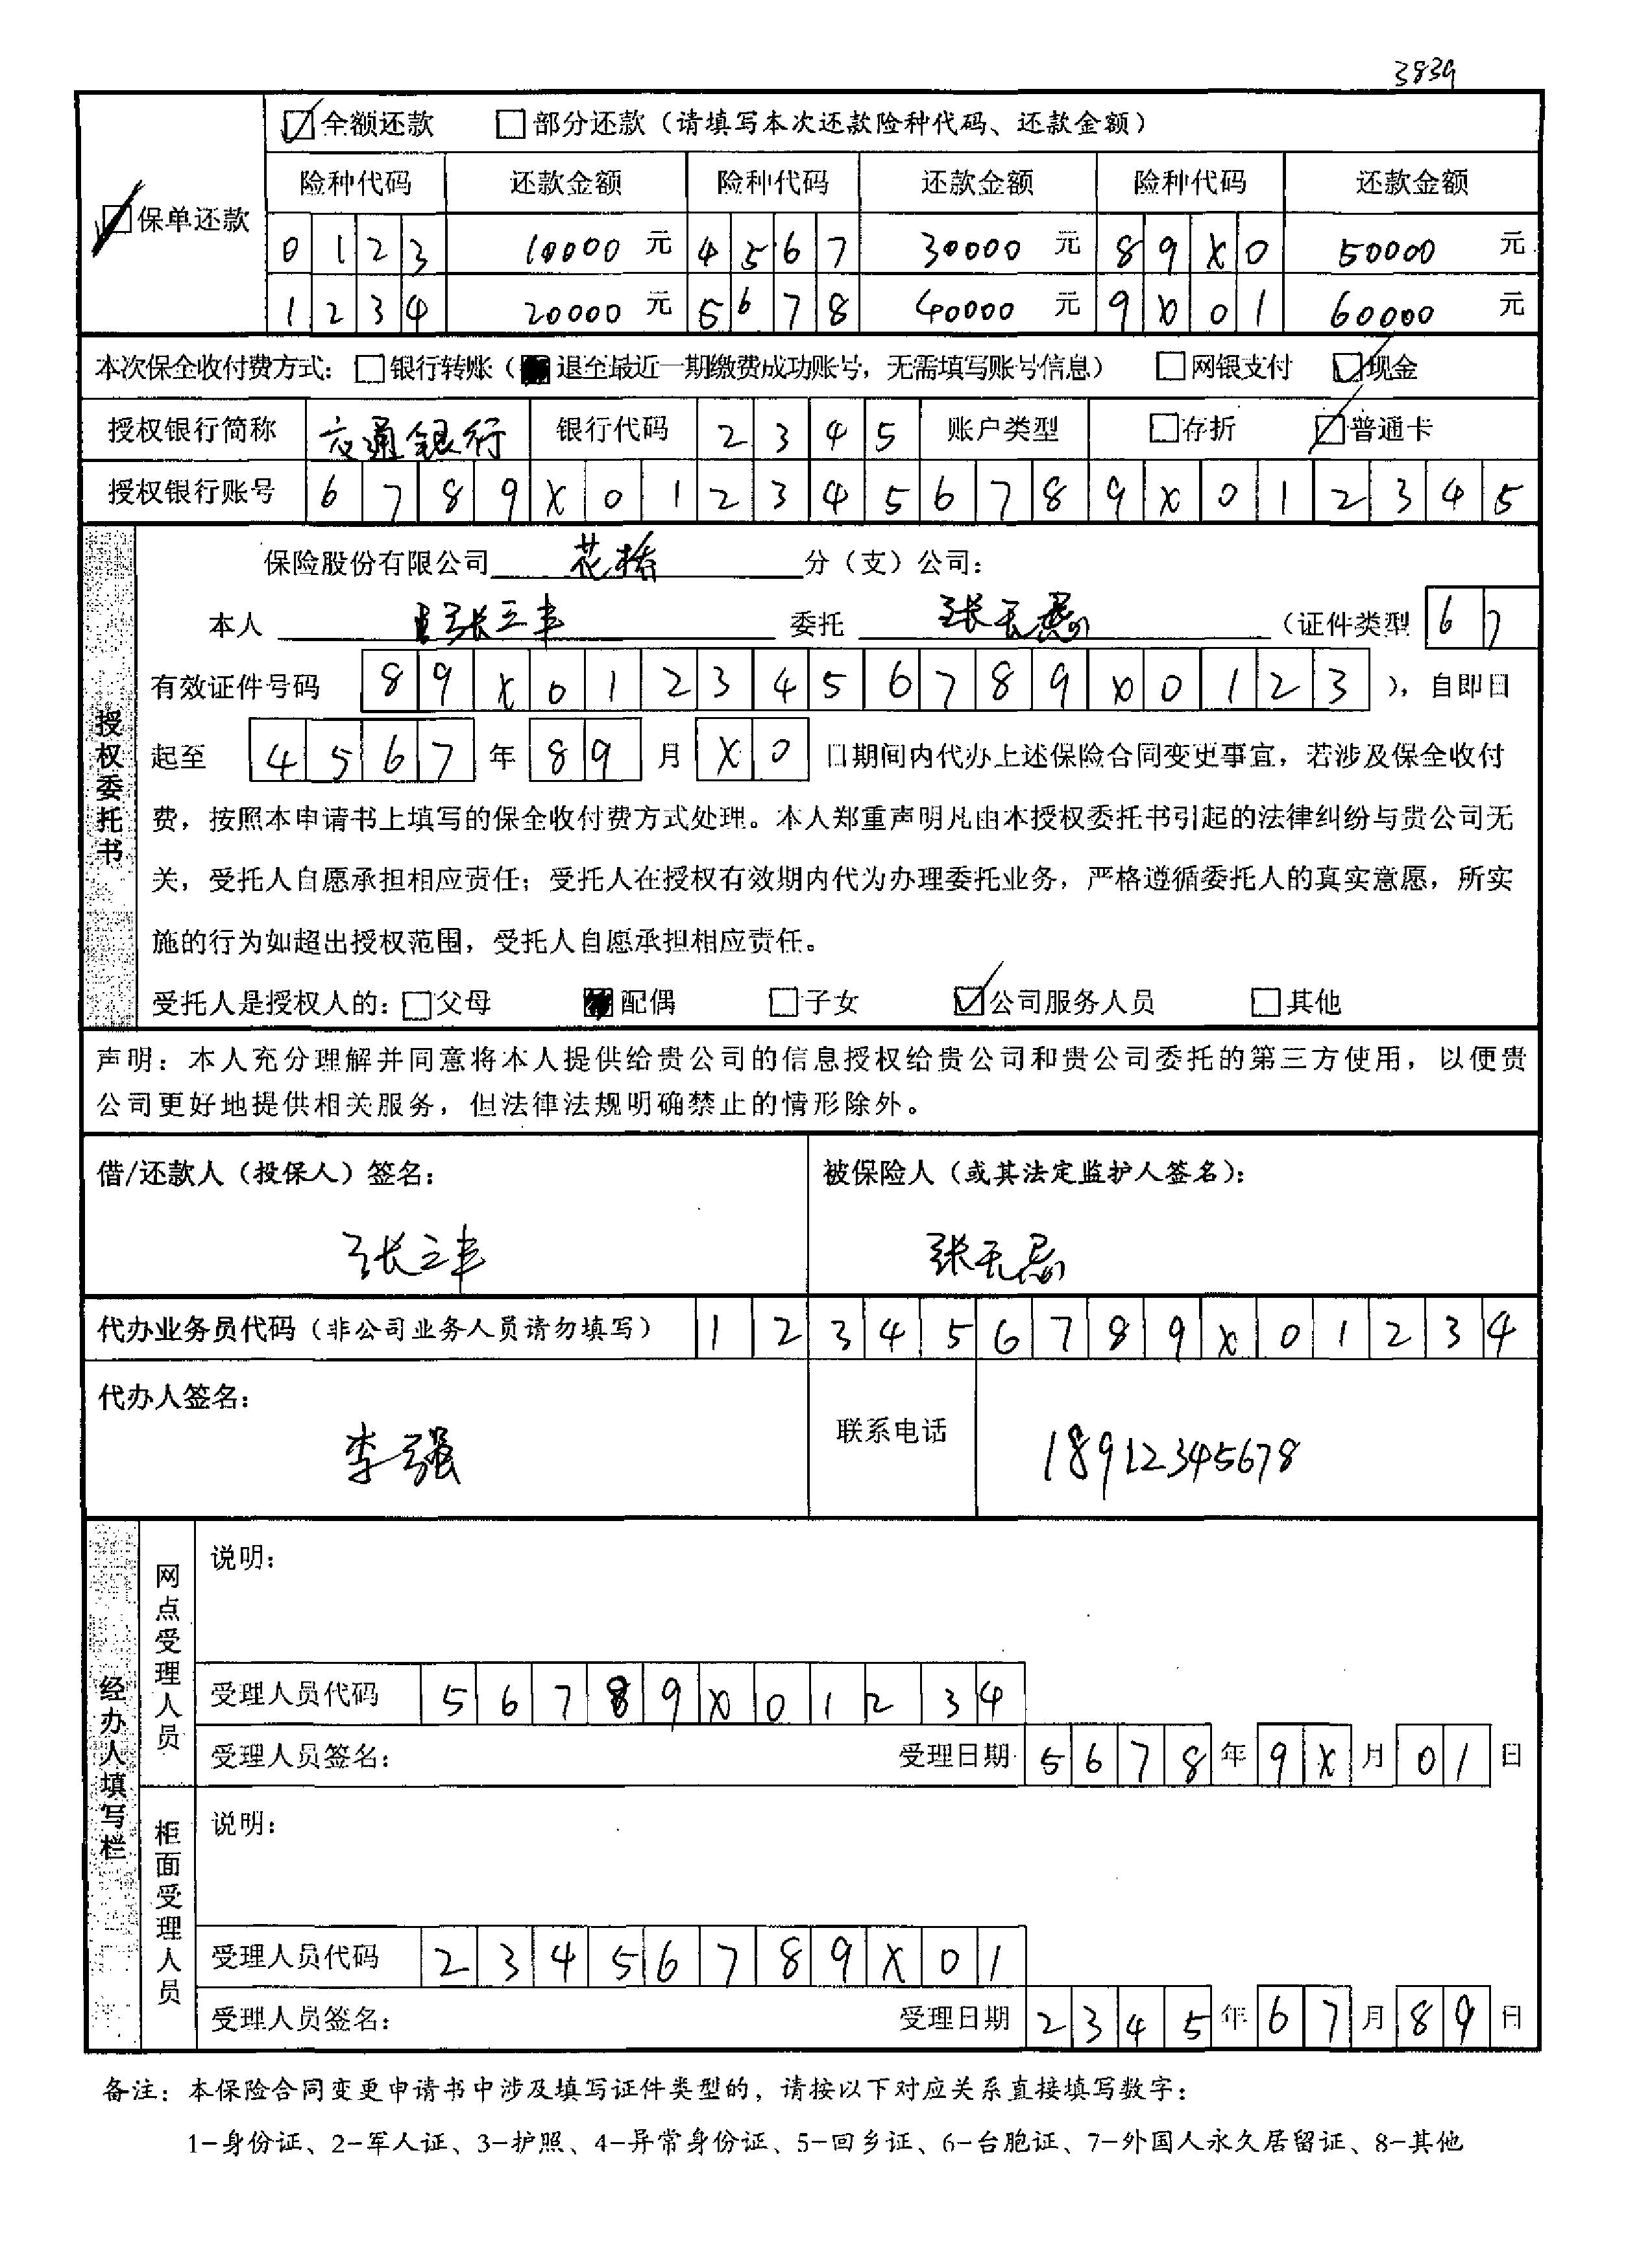 3839
☑全额还款 □部分还款（请填写本次还款险种代码、还款金额）
☑保单还款
险种代码 还款金额 险种代码 还款金额 险种代码 还款金额
0123 10000 元 4567 30000 元 89X0 50000 元
1234 20000 元 5678 40000 元 9X01 60000 元
本次保全收付费方式：□银行转账（■退至最近一期缴费成功账号，无需填写账号信息） □网银支付 ☑现金
授权银行简称 交通银行 银行代码 2345 账户类型 □存折 ☑普通卡
授权银行账号 6789X0123456789X012345
授权委托书
保险股份有限公司 花桥 分（支）公司：
本人 张三丰 委托 张无忌 （证件类型 67
有效证件号码 89X0123456789X0123 ），自即日
起至 4567 年 89 月 X0 日期间内代办上述保险合同变更事宜，若涉及保全收付
费，按照本申请书上填写的保全收付费方式处理。本人郑重声明凡由本授权委托书引起的法律纠纷与贵公司无
关，受托人自愿承担相应责任；受托人在授权有效期内代为办理委托业务，严格遵循委托人的真实意愿，所实
施的行为如超出授权范围，受托人自愿承担相应责任。
受托人是授权人的：□父母 ■配偶 □子女 ☑公司服务人员 □其他
声明：本人充分理解并同意将本人提供给贵公司的信息授权给贵公司和贵公司委托的第三方使用，以便贵
公司更好地提供相关服务，但法律法规明确禁止的情形除外。
借/还款人（投保人）签名： 被保险人（或其法定监护人签名）：
张三丰 张无忌
代办业务员代码（非公司业务人员请勿填写） 123456789X01234
代办人签名：
李强 联系电话 18912345678
经办人填写栏
网点受理人员
说明：
受理人员代码 56789X01234
受理人员签名： 受理日期 5678 年 9X 月 01 日
柜面受理人员
说明：
受理人员代码 23456789X01
受理人员签名： 受理日期 2345 年 67 月 89 日
备注：本保险合同变更申请书中涉及填写证件类型的，请按以下对应关系直接填写数字：
1-身份证、2-军人证、3-护照、4-异常身份证、5-回乡证、6-台胞证、7-外国人永久居留证、8-其他